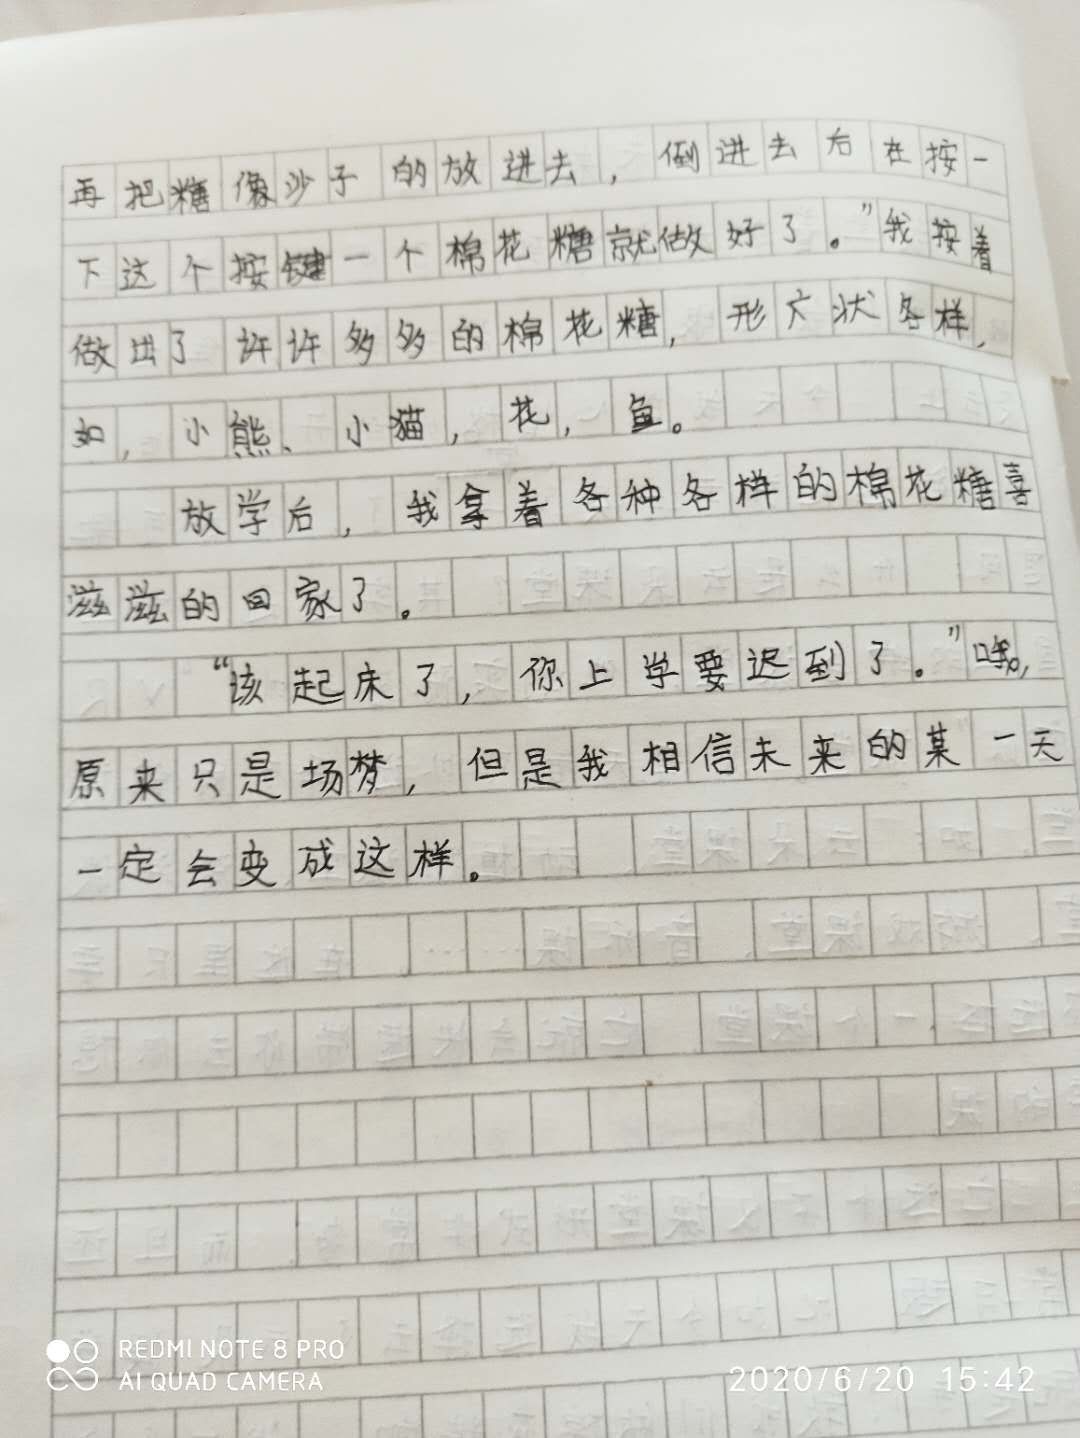 再把糖像沙子的放进去，倒进去后在按一
下这个按键一个棉花糖就做好了。”我按着
做出了许许多多的棉花糖，形广状各样，
如，小熊、小猫，花，鱼。
放学后，我拿着各种各样的棉花糖喜
滋滋的回家了。
“该起床了，你上学要迟到了。”哦，
原来只是场梦，但是我相信未来的某一天
一定会变成这样。
REDMI NOTE 8 PRO
AI QUAD CAMERA
2020/6/20 15:42